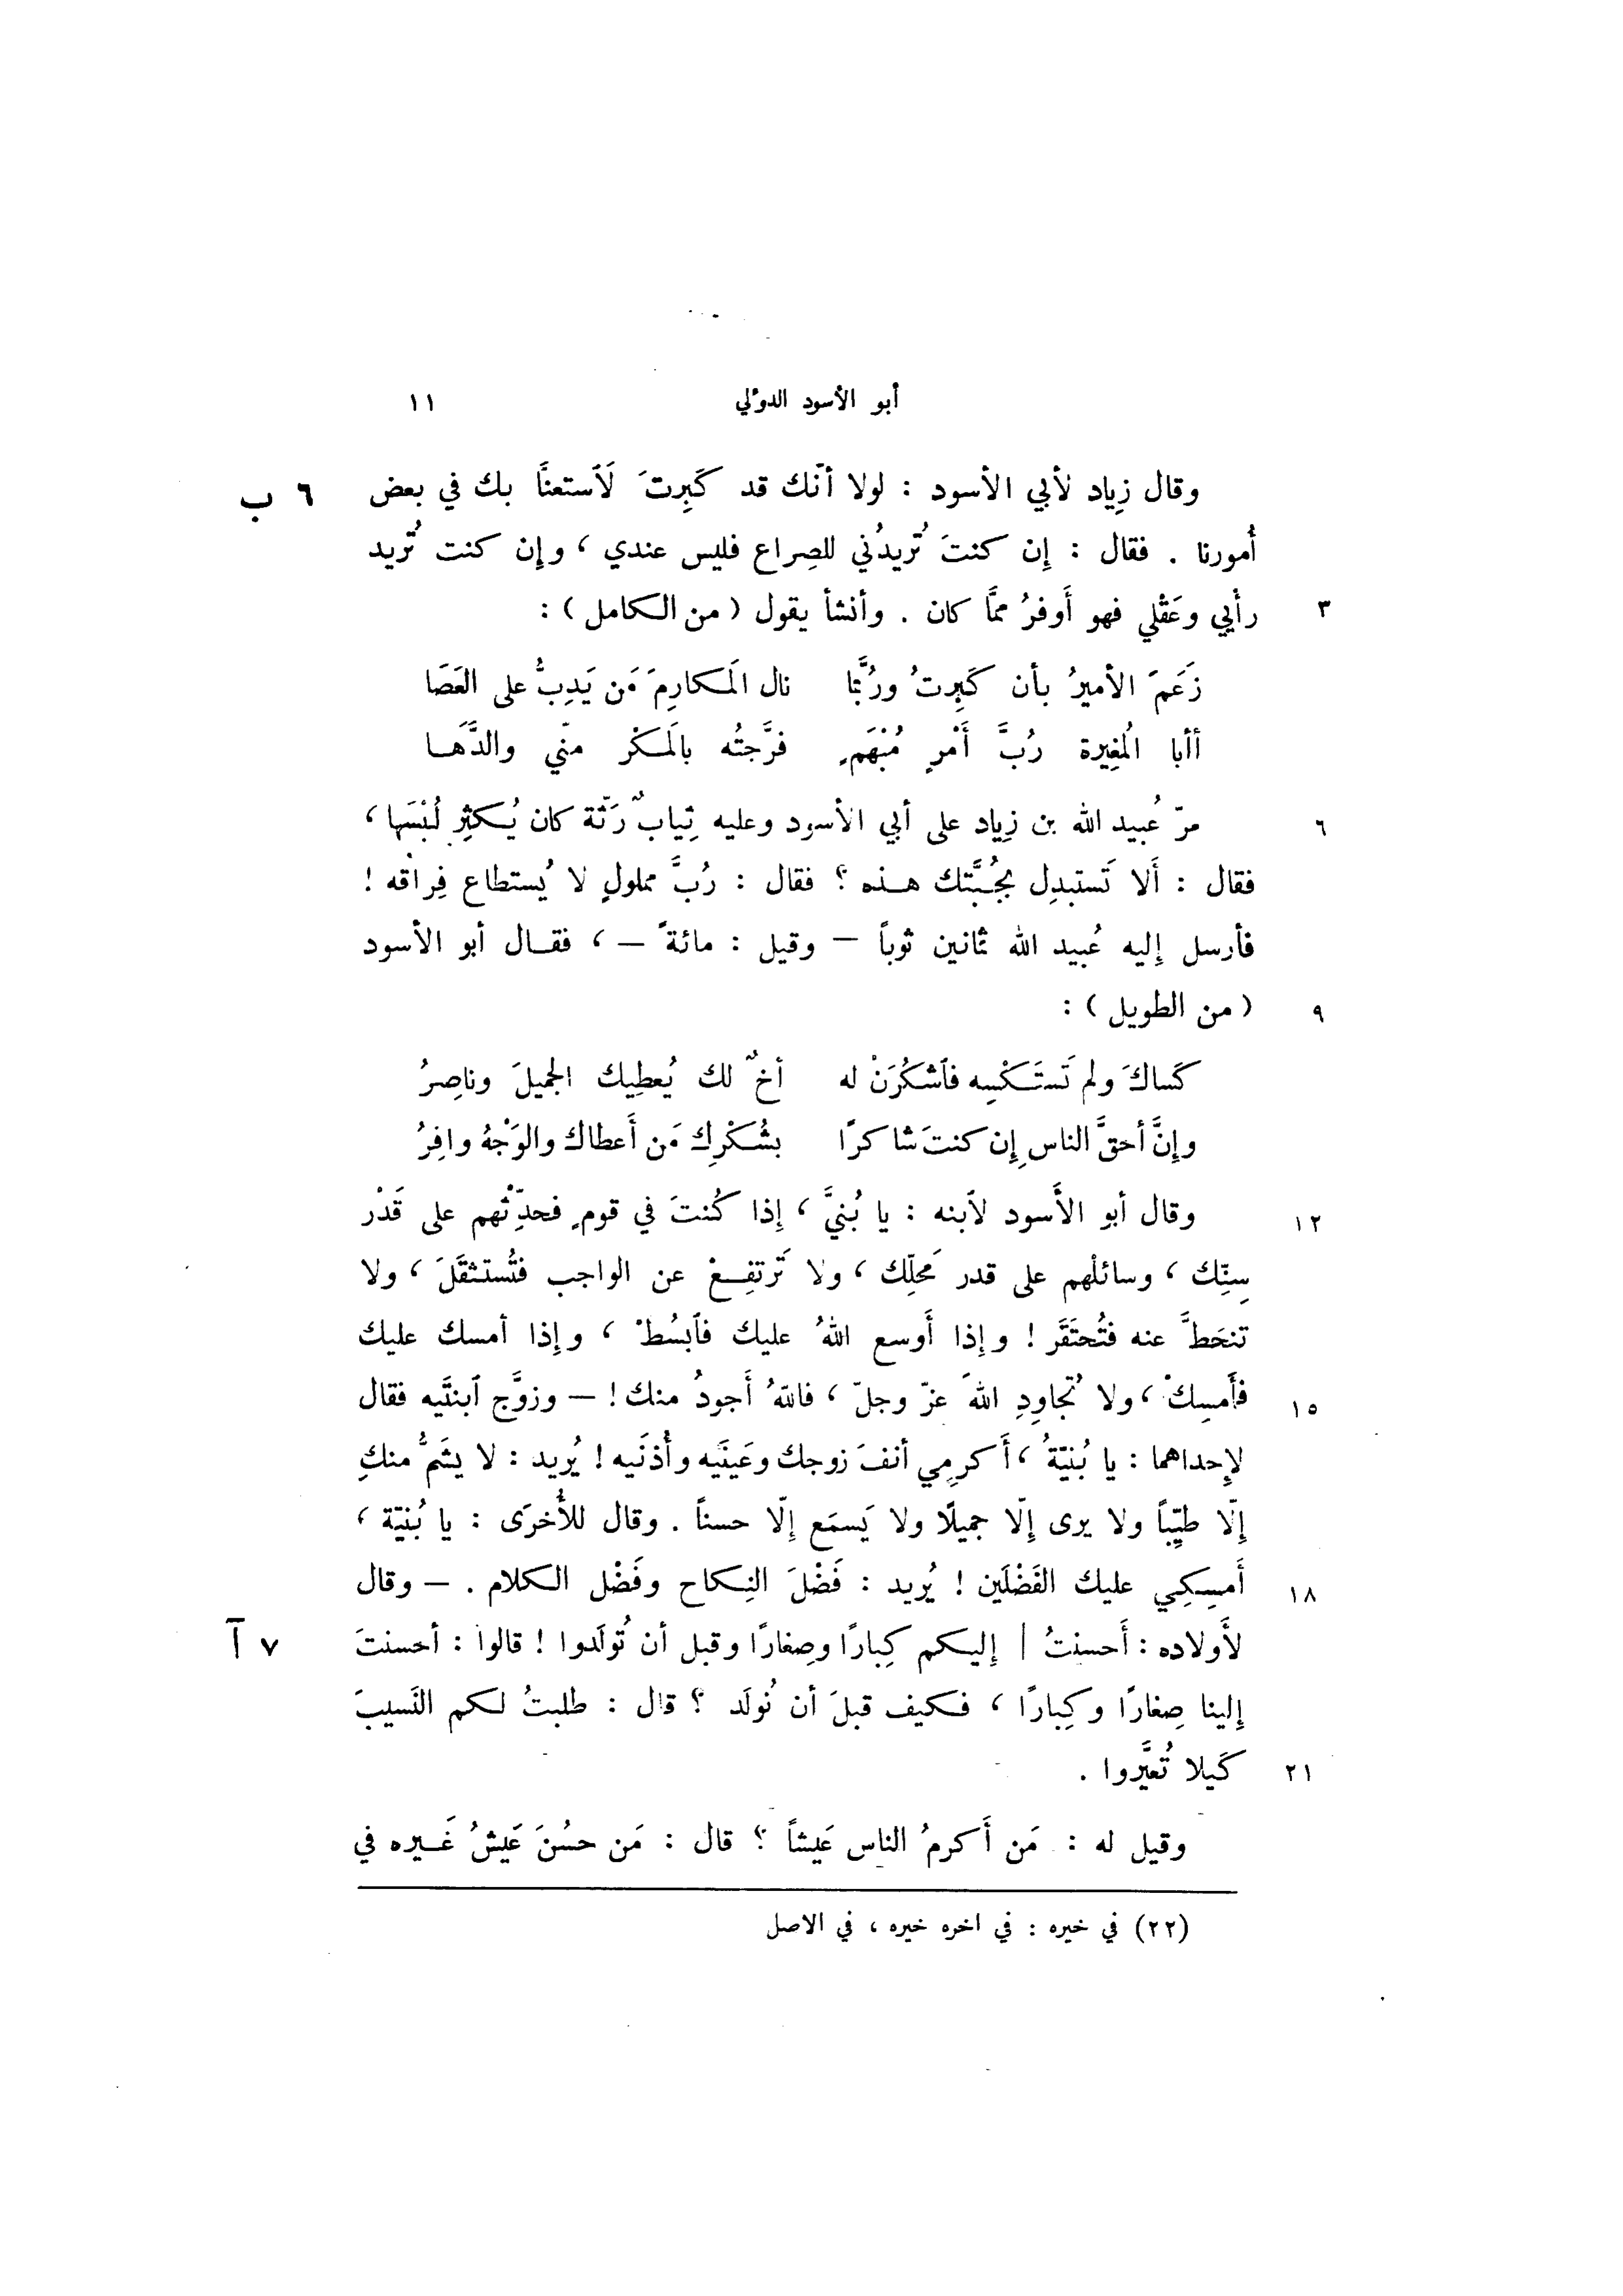 أبو الأسود الدؤلي ١١
وقال زِياد لأبي الأسود : لولا أنّك قد كَبِرتَ لَٱستعنَّا بك في بعض ٦ ب
أُمورنا . فقال : إِن كنتَ تُريدُني للصِراع فليس عندي ، وإِن كنت تُريد
٣ رأيي وعَقْلي فهو أَوفرُ ممَّا كان . وأنشأ يقول ( من الكامل ) :
زَعَمَ الأميرُ بأن كَبِرتُ ورُبَّما نال المَكارِمَ مَن يَدِبُّ على العَصَا
أأبا المُغِيرة رُبَّ أَمْرٍ مُبْهَمٍ فرَّجتُه بالمَكْر منّي والدَّهَا
٦ مرّ عُبيد الله بن زِياد على أبي الأسود وعليه ثِيابٌ رَثّة كان يُكثِر لُبْسَها ،
فقال : أَلا تَستبدِل بجُبَّتك هذه ؟ فقال : رُبَّ مملولٍ لا يُستطاع فِراقه !
فأرسل إليه عُبيد الله ثمانين ثوباً – وقيل : مائةً – ، فقال أبو الأسود
٩ ( من الطويل ) :
كَساكَ ولم تَستَكْسِه فٱشكُرَنْ له أخٌ لك يُعطِيك الجميلَ وناصِرُ
وإِنَّ أحقَّ الناسِ إِن كنتَ شاكرًا بشُكْرِك مَن أَعطاك والوَجْهُ وافِرُ
١٢ وقال أبو الأَسود لٱبنه : يا بُنيَّ ، إِذا كُنتَ في قومٍ فحدِّثْهم على قَدْر
سِنِّك ، وسائلْهم على قدر مَحلِّك ، ولا تَرتفِعْ عن الواجب فتُستثقَلَ ، ولا
تنحَطَّ عنه فتُحتَقَر ! وإِذا أَوسع اللهُ عليك فٱبسُطْ ، وإِذا أمسك عليك
١٥ فأَمسِكْ ، ولا تُجاوِدِ اللهَ عزّ وجلّ ، فاللهُ أَجودُ منك ! – وزوَّج ٱبنتَيه فقال
لإِحداهما : يا بُنيّةُ ، أَكرِمِي أنفَ زوجك وعَينَيه وأُذنَيه ! يُريد : لا يشَمُّ منكِ
إِلّا طيِّباً ولا يرى إِلّا جميلًا ولا يَسمَع إِلّا حسناً . وقال للأُخرَى : يا بُنيّة ،
١٨ أَمسِكِي عليك الفَضْلَين ! يُريد : فَضْلَ النِكاح وفَضْل الكلام . – وقال
لأَولاده : أَحسنتُ | إِليكم كِبارًا وصِغارًا وقبل أن تُولَدوا ! قالوا : أحسنتَ ٧ آ
إِلينا صِغارًا وكِبارًا ، فكيف قبلَ أن نُولَد ؟ قال : طلبتُ لكم النَسيبَ
٢١ كَيلا تُعيَّروا .
وقيل له : مَن أَكرمُ الناس عَيشاً ؟ قال : مَن حسُنَ عَيشُ غَيره في
(٢٢) في خيره : في اخره خيره ، في الاصل